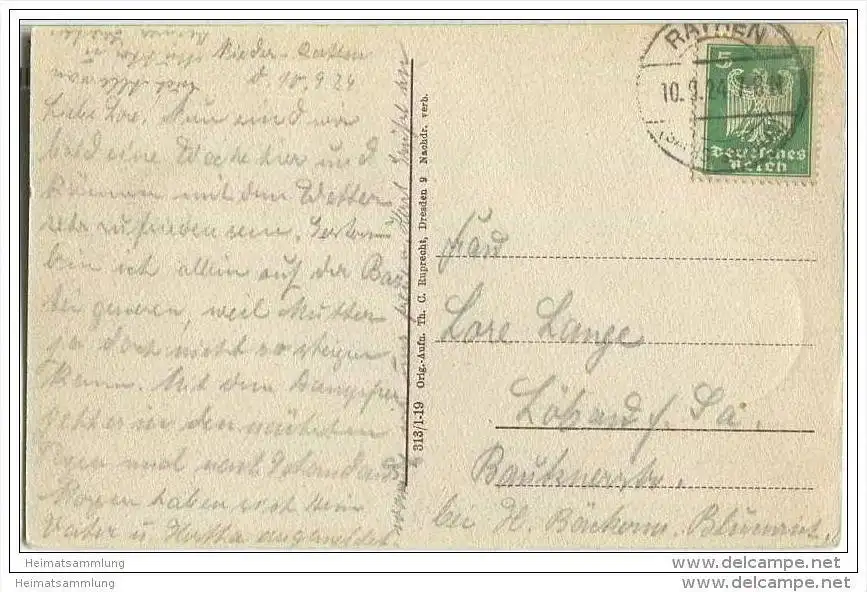 Nieder-Rathen
d. 10.9.24
Liebe Lore. Nun sind wir
bald eine Woche hier und
können mit dem Wetter
sehr zufrieden sein. Gestern
bin ich allein auf der Bas
tei gewesen, weil Mutter
ja doch nicht so steigen
kann. Mit dem Dampfer
geht es in den nächsten
Tagen mal nach Schandau.
Morgen haben sich dein
Vater u. Hertha angemeldet.
313/1-19 Orig.-Aufn. Th. C. Ruprecht, Dresden 9 Nachdr. verb.
RATHEN
10.9.24
5
Deutsches
Reich
Frau
Lore Lange
Löbau i/ Sa.
Bautznerstr.
bei H. Bäckerm. Blumrich
Heimatsammlung
Heimatsammlung
www.delcampe.net
www.delcampe.net